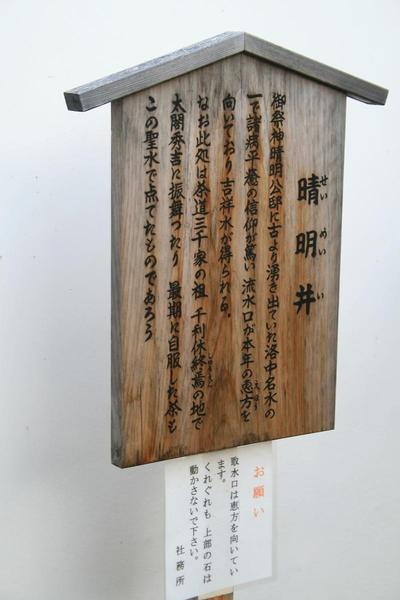 晴明井
せいめいい
御祭神晴明公邸に古より湧き出ていた洛中名水の
一で諸病平癒の信仰が篤い 流水口が本年の恵方を
えほう
向いており吉祥水が得られる。
なお此処は茶道三千家の祖 千利休終焉の地で
しゅうえん
太閤秀吉に振舞ったり 最期に自服した茶も
この聖水で点てたものであろう
お願い
取水口は恵方を向いてい
ます。
くれぐれも 上部の石は
動かさないで下さい。
社務所